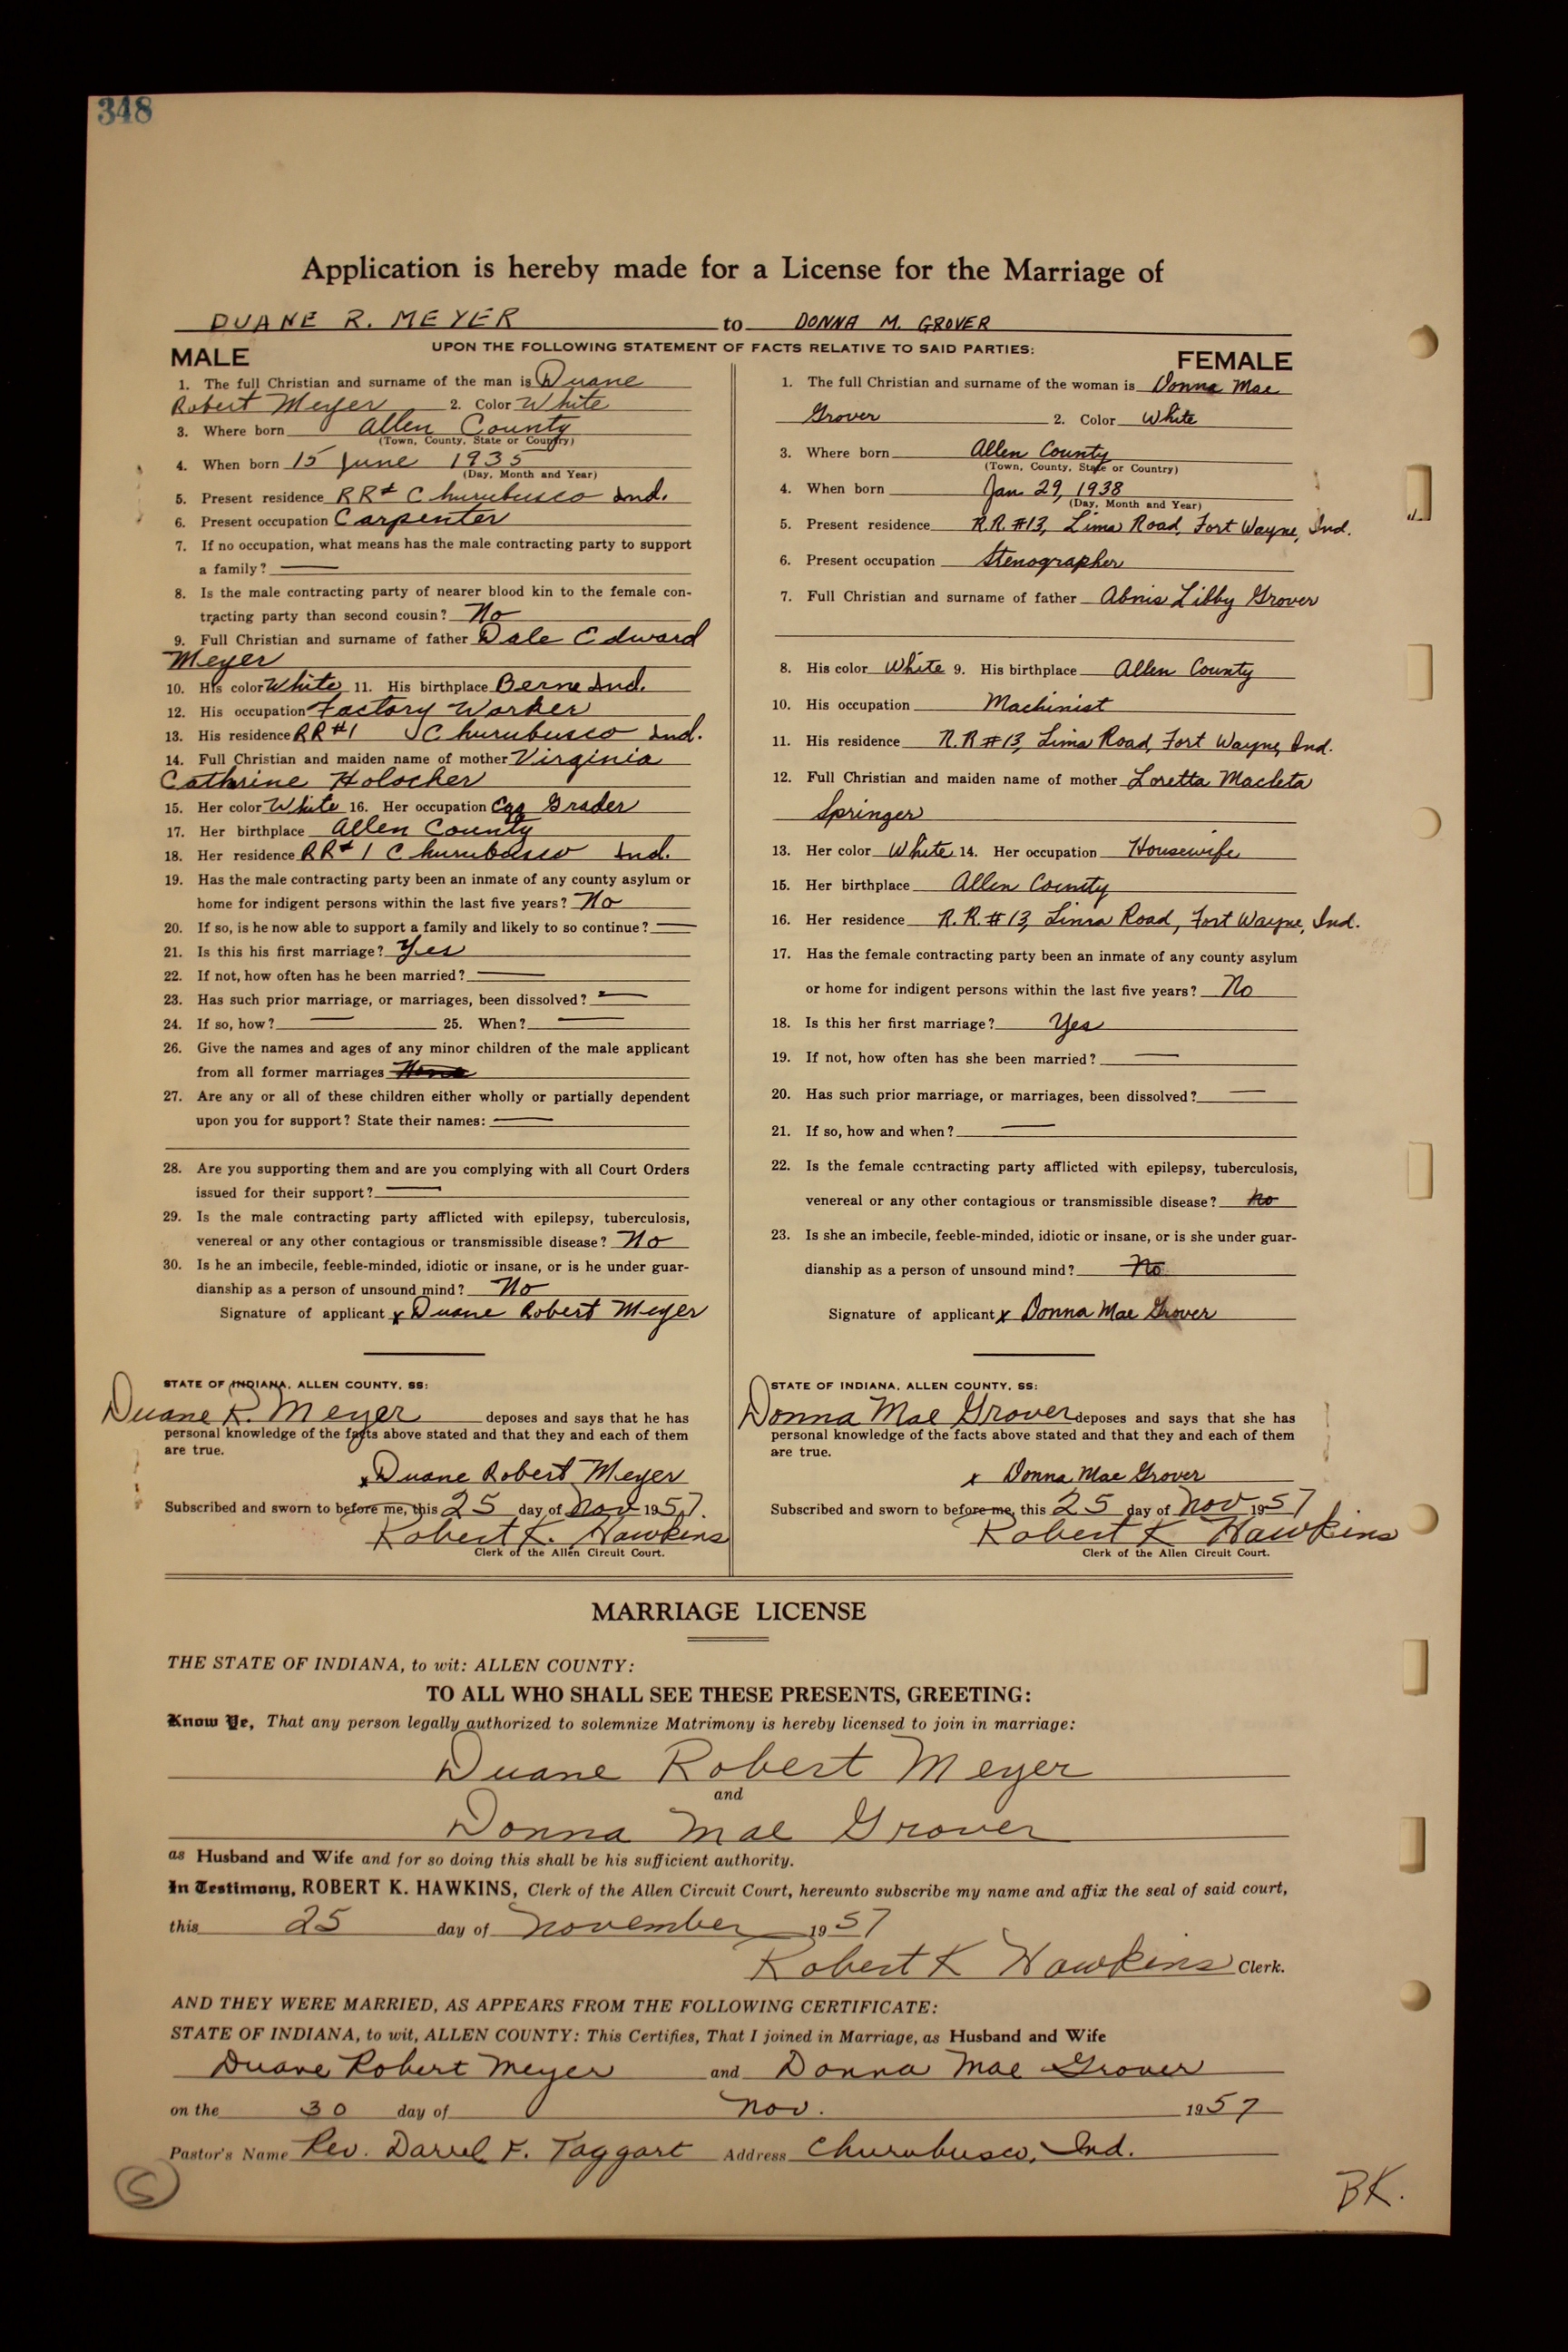 348
Application is hereby made for a License for the Marriage of
DUANE R. MEYER to DONNA M. GROVER
UPON THE FOLLOWING STATEMENT OF FACTS RELATIVE TO SAID PARTIES:
MALE
1. The full Christian and surname of the man is Duane
Robert Meyer 2. Color White
3. Where born Allen County
(Town, County, State or Country)
4. When born 15 June 1935
(Day, Month and Year)
5. Present residence RR# Churubusco Ind.
6. Present occupation Carpenter
7. If no occupation, what means has the male contracting party to support
a family? —
8. Is the male contracting party of nearer blood kin to the female con-
tracting party than second cousin? No
9. Full Christian and surname of father Dale Edward
Meyer
10. His color White 11. His birthplace Berne Ind.
12. His occupation Factory Worker
13. His residence RR#1 Churubusco Ind.
14. Full Christian and maiden name of mother Virginia
Cathrine Holocher
15. Her color White 16. Her occupation Egg Grader
17. Her birthplace Allen County
18. Her residence RR# 1 Churubusco Ind.
19. Has the male contracting party been an inmate of any county asylum or
home for indigent persons within the last five years? No
20. If so, is he now able to support a family and likely to so continue? —
21. Is this his first marriage? Yes
22. If not, how often has he been married? —
23. Has such prior marriage, or marriages, been dissolved? —
24. If so, how? — 25. When? —
26. Give the names and ages of any minor children of the male applicant
from all former marriages None
27. Are any or all of these children either wholly or partially dependent
upon you for support? State their names: —
28. Are you supporting them and are you complying with all Court Orders
issued for their support? —
29. Is the male contracting party afflicted with epilepsy, tuberculosis,
venereal or any other contagious or transmissible disease? No
30. Is he an imbecile, feeble-minded, idiotic or insane, or is he under guar-
dianship as a person of unsound mind? No
Signature of applicant x Duane Robert Meyer
STATE OF INDIANA, ALLEN COUNTY, SS:
Duane R. Meyer deposes and says that he has
personal knowledge of the facts above stated and that they and each of them
are true.
x Duane Robert Meyer
Subscribed and sworn to before me, this 25 day of Nov 1957.
Robert K. Hawkins
Clerk of the Allen Circuit Court.
FEMALE
1. The full Christian and surname of the woman is Donna Mae
Grover 2. Color White
3. Where born Allen County
(Town, County, State or Country)
4. When born Jan 29, 1938
(Day, Month and Year)
5. Present residence R.R. #13, Lima Road, Fort Wayne, Ind.
6. Present occupation Stenographer
7. Full Christian and surname of father Libby Grover
8. His color White 9. His birthplace Allen County
10. His occupation Machinist
11. His residence R.R #13, Lima Road, Fort Wayne, Ind.
12. Full Christian and maiden name of mother Loretta Macleta
Springer
13. Her color White 14. Her occupation Housewife
15. Her birthplace Allen County
16. Her residence R.R. #13, Lima Road, Fort Wayne, Ind.
17. Has the female contracting party been an inmate of any county asylum
or home for indigent persons within the last five years? No
18. Is this her first marriage? Yes
19. If not, how often has she been married? —
20. Has such prior marriage, or marriages, been dissolved? —
21. If so, how and when? —
22. Is the female contracting party afflicted with epilepsy, tuberculosis,
venereal or any other contagious or transmissible disease? No
23. Is she an imbecile, feeble-minded, idiotic or insane, or is she under guar-
dianship as a person of unsound mind? No
Signature of applicant x Donna Mae Grover
STATE OF INDIANA, ALLEN COUNTY, SS:
Donna Mae Grover deposes and says that she has
personal knowledge of the facts above stated and that they and each of them
are true.
x Donna Mae Grover
Subscribed and sworn to before me, this 25 day of Nov 1957
Robert K Hawkins
Clerk of the Allen Circuit Court.
MARRIAGE LICENSE
THE STATE OF INDIANA, to wit: ALLEN COUNTY:
TO ALL WHO SHALL SEE THESE PRESENTS, GREETING:
Know Ye, That any person legally authorized to solemnize Matrimony is hereby licensed to join in marriage:
Duane Robert Meyer
and
Donna Mae Grover
as Husband and Wife and for so doing this shall be his sufficient authority.
In Testimony, ROBERT K. HAWKINS, Clerk of the Allen Circuit Court, hereunto subscribe my name and affix the seal of said court,
this 25 day of November 1957
Robert K Hawkins Clerk.
AND THEY WERE MARRIED, AS APPEARS FROM THE FOLLOWING CERTIFICATE:
STATE OF INDIANA, to wit, ALLEN COUNTY: This Certifies, That I joined in Marriage, as Husband and Wife
Duane Robert Meyer and Donna Mae Grover
on the 30 day of Nov. 1957
Pastor's Name Rev. Darrel F. Taggart Address Churubusco, Ind.
S
BK.